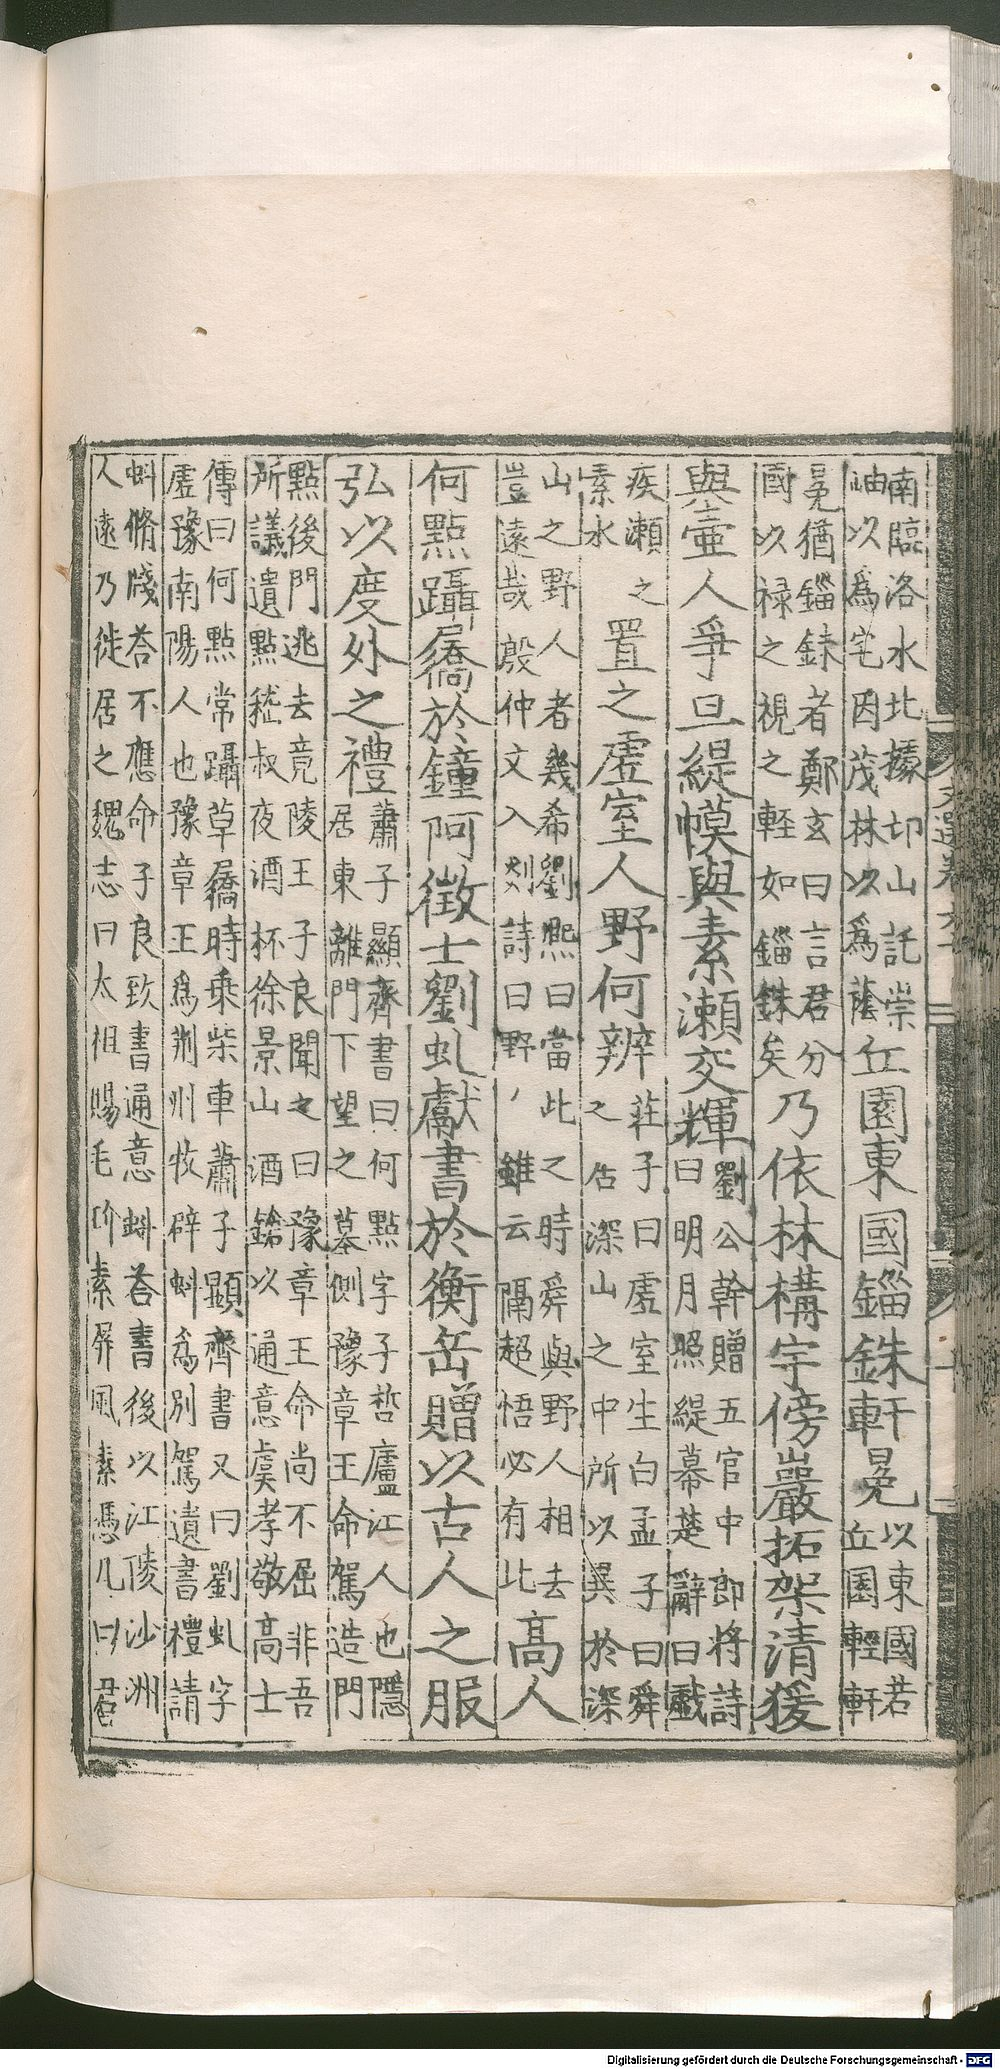 南臨洛水北據卭山託崇
岫以爲宅因茂林以爲蔭丘園東國錙銖軒冕以東國若
丘園輕軒
冕猶錙銖者鄭玄曰言君分
國以祿之視之輕如錙銖矣乃依林構宇傍巖拓架清猨
與壷人爭旦緹幙與素瀨交輝劉公幹贈五官中郎將詩
曰明月照緹幕楚辭曰戲
疾瀨之
素水置之虛室人野何辨莊子曰虛室生白孟子曰舜
之居深山之中所以異於深
山之野人者幾希劉熙曰當此之時舜與野人相去
豈遠哉殷仲文入剡詩曰野人雖云隔超悟必有此高人
何點躡屩於鐘阿徵士劉虬獻書於衡岳贈以古人之服
弘以度外之禮蕭子顯齊書曰何點字子哲廬江人也隱
居東離門下望之墓側豫章王命駕造門
點後門逃去竟陵王子良聞之曰豫章王命尚不屈非吾
所議遺點嵇叔夜酒杯徐景山酒鎗以通意虞孝敬高士
傳曰何點常躡草屩時乗柴車蕭子顯齊書又曰劉虬字
虛豫南陽人也豫章王爲荆州牧辟虬爲別駕遺書禮請
虬脩牋荅不應命子良致書通意虬荅書後以江陵沙洲
人遠乃徙居之魏志曰太祖賜毛玠素屏風素憑几曰君
文選卷六十
Digitalisierung gefördert durch die Deutsche Forschungsgemeinschaft - DFG